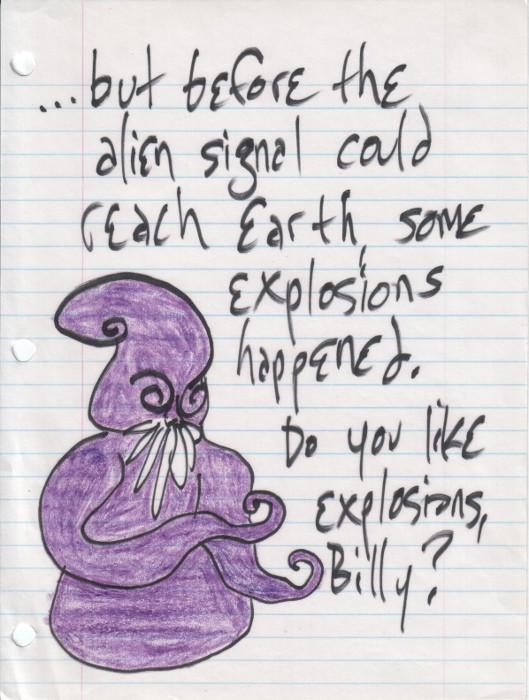 ...but before the
alien signal could
reach Earth, some
explosions
happened.
Do you like
explosions,
Billy?